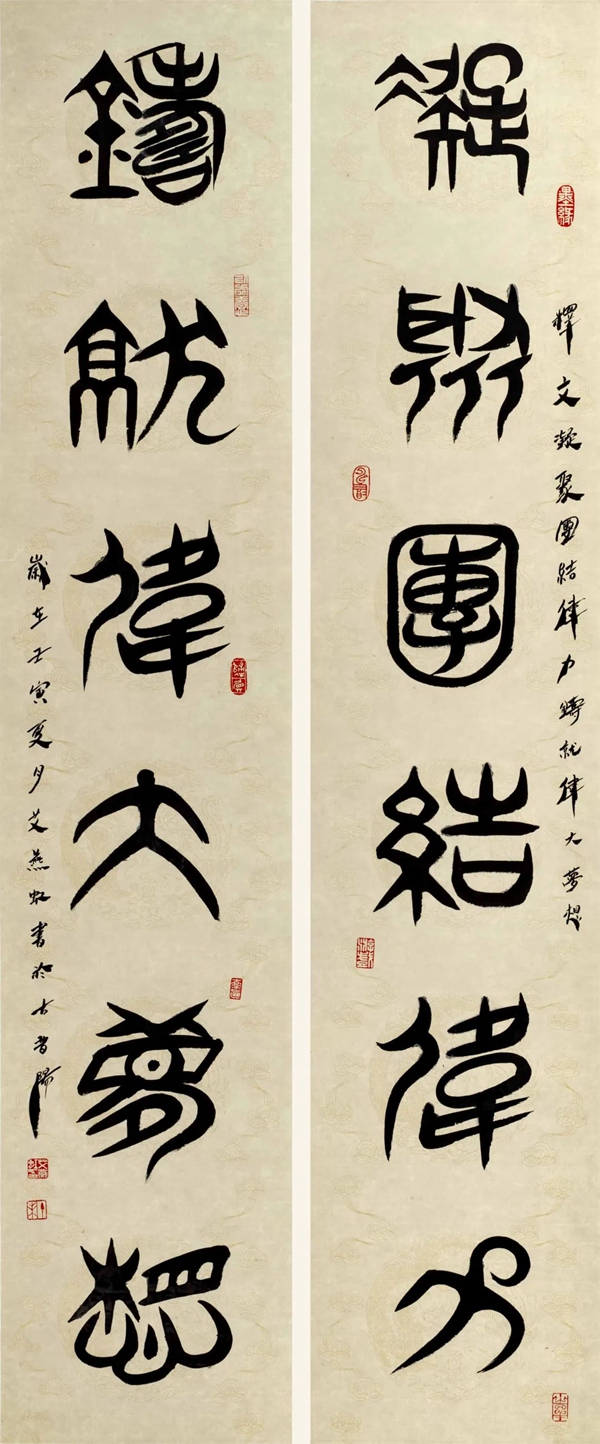 釋文凝聚團結偉力鑄就偉大夢想
凝聚團結偉力
鑄就偉大夢想
歲在壬寅夏月艾燕虹書於古昔陽